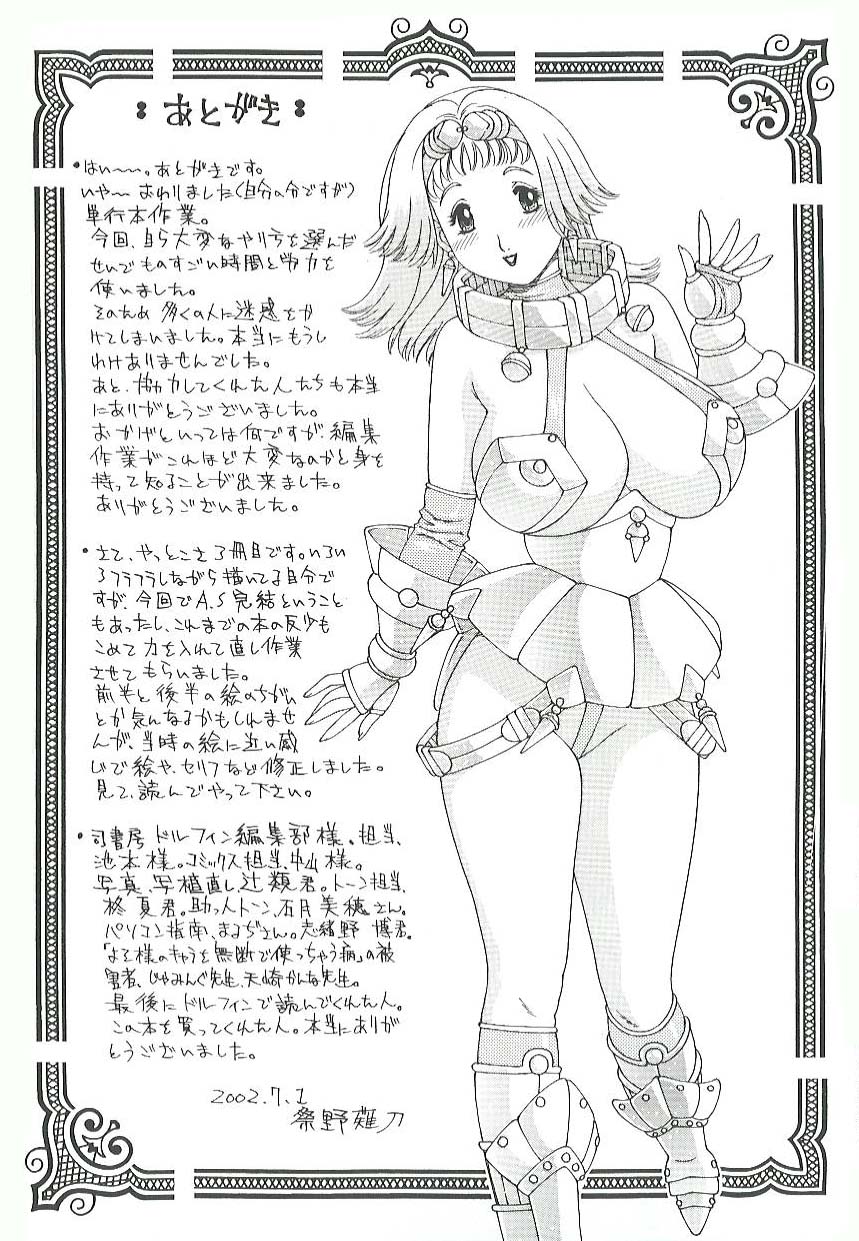 あとがき
・はい〜〜。あとがきです。
いや〜 おわりました(自分の分ですが)
単行本作業。
今回、自ら大変なやり方を選んだ
せいでものすごい時間と労力を
使いました。
そのため 多くの人に迷惑をか
けてしまいました。本当にもうし
わけありませんでした。
あと、協力してくれた人たちも本当
にありがとうございました。
おかげといっては何ですが、編集
作業がこれほど大変なのかと身を
持って知ることが出来ました。
ありがとうございました。
・さて、やっとこさ3冊目です。いろい
ろフラフラしながら描いてる自分で
すが、今回でA.S完結ということ
もあったし、これまでの本の反少も
こめて力を入れて直し作業
させてもらいました。
前半と後半の絵のちがい
とか気んなるかもしれませ
んが、当時の絵に近い感
じで絵や、セリフなど修正しました。
見て、読んでやって下さい。
・司書房 ドルフィン編集部様。担当、
池本様。コミックス担当、中山様。
写真、写植直し、辻類君。トーン担当、
柊夏君。助っ人トーン、石月美穂さん。
パソコン指南、まるぢさん。志緒野 博君。
「よそ様のキャラを無断で使っちゃう病」の被
害者、じゃみんぐ先生、天崎かんな先生。
最後にドルフィンで読んでくれた人。
この本を買ってくれた人。本当にありが
とうございました。
2002.7.1
祭野薙刀